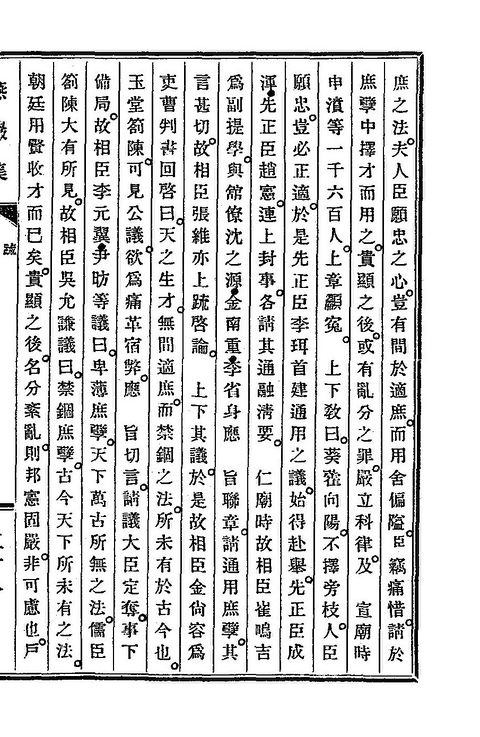 庶之法夫人臣願忠之心豈有間於適庶而用舍偏隘臣竊痛惜請於
庶孼中擇才而用之貴顯之後或有亂分之罪嚴立科律及　宣廟時
申濆等一千六百人上章籲寃　上下敎曰葵藿向陽不擇旁枝人臣
願忠豈必正適於是先正臣李珥首建通用之議始得赴擧先正臣成
渾先正臣趙憲連上封事各請其通融淸要　仁廟時故相臣崔鳴吉
爲副提學與舘僚沈之源金南重李省身應　旨聯章請通用庶孼其
言甚切故相臣張維亦上䟽啓論　上下其議於是故相臣金尙容爲
吏曹判書回啓曰天之生才無間適庶而禁錮之法所未有於古今也
玉堂箚陳可見公議欲爲痛革宿弊應　旨切言請議大臣定奪事下
備局故相臣李元翼尹昉等議曰卑薄庶孼天下萬古所無之法儒臣
箚陳大有所見故相臣吳允謙議曰禁錮庶孼古今天下所未有之法
朝廷用賢收才而已矣貴顯之後名分紊亂則邦憲固嚴非可慮也戶
集
疏